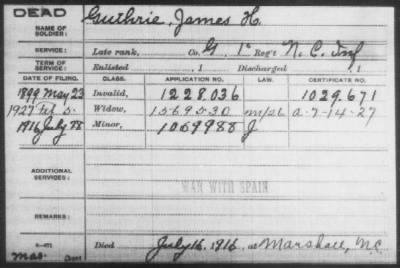 DEAD
NAME OF SOLDIER: Guthrie, James H.
SERVICE: Late rank, Co. G, 1st Reg't N. C. Inf
TERM OF SERVICE: Enlisted , 1 Discharged , 1
DATE OF FILING. CLASS. APPLICATION NO. LAW. CERTIFICATE NO.
1899 May 23 Invalid, 1228.036 1029.671
1927 Feb. 5. Widow, 1569530 a-7-14-27
1916 July 28 Minor, 1059988 J
ADDITIONAL SERVICES:
WAR WITH SPAIN
REMARKS:
Died July 16, 1916, at Marshall, N.C.